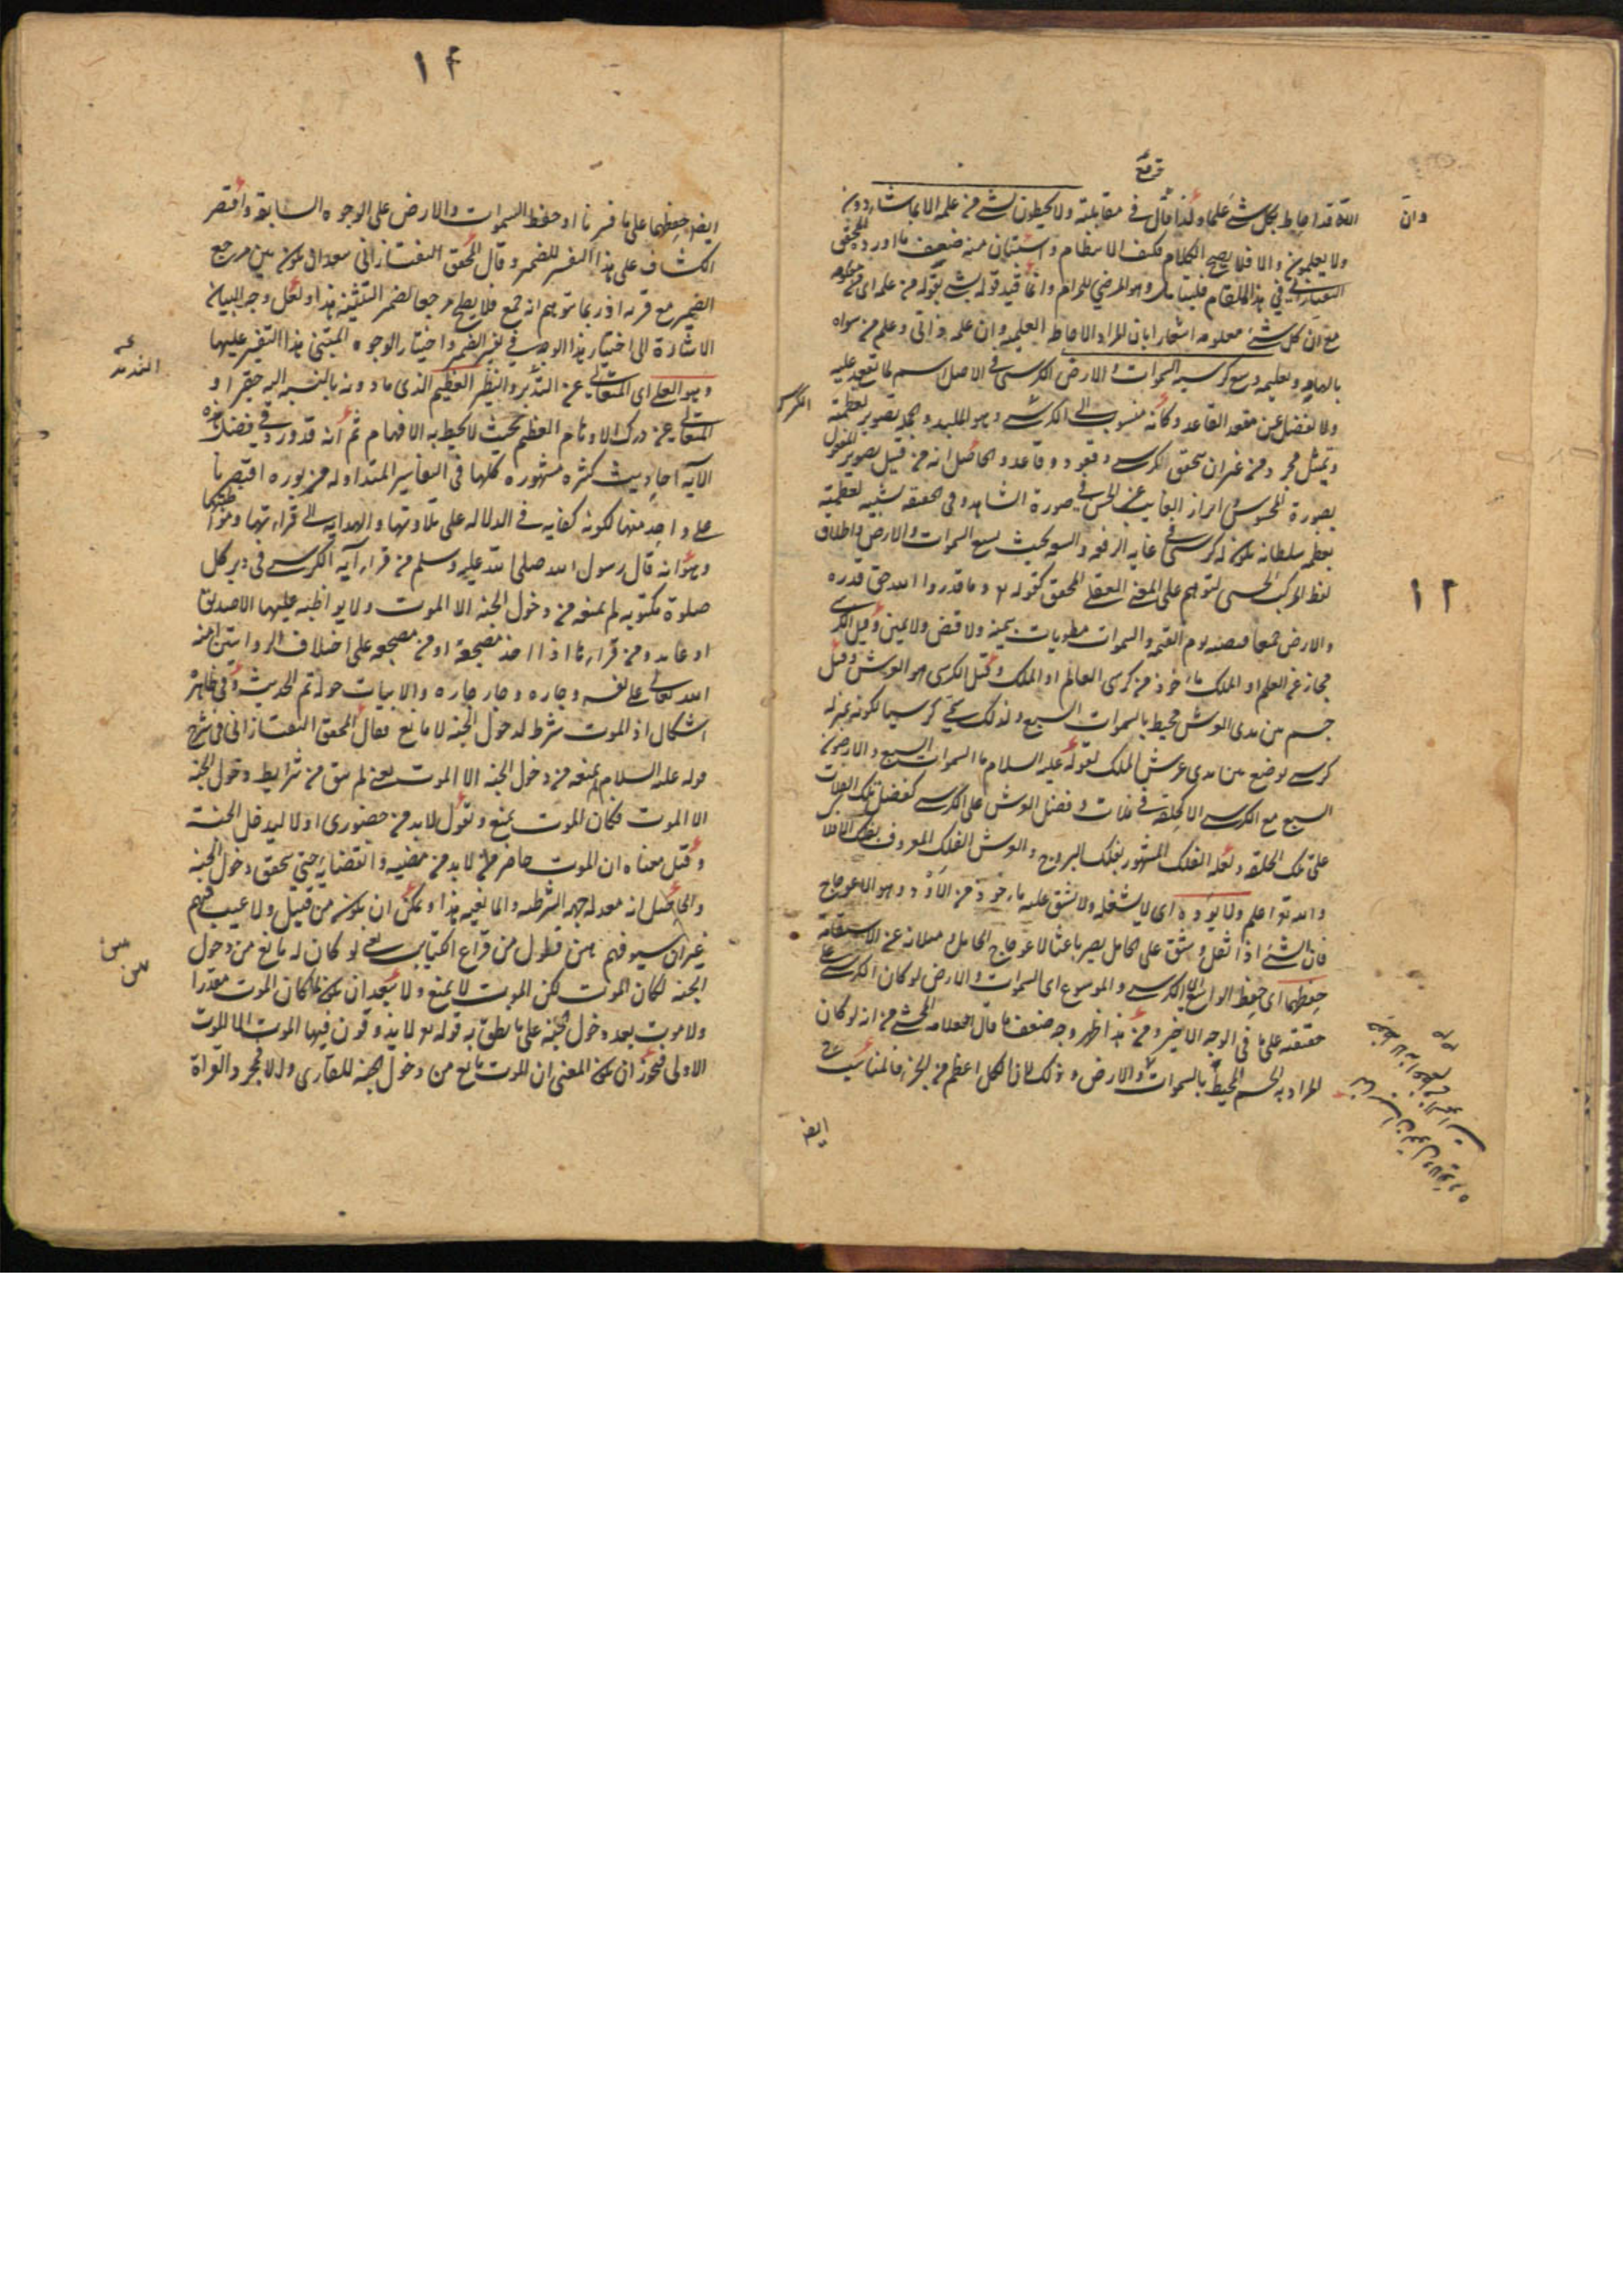 وان
الله قد احاط بكل شئ علما ولذا قال في مقابلته ولا يحيطون بشئ من علمه الا بما شاء دون
ولا يعلمون والا فلا يصح الكلام فكيف الانتظام واستبان منه ضعف ما اورده المحقق
التفتازاني في هذا المقام فليتأمل وهو المرضي للمرام وانما قيد قوله بشئ بقوله من علمه اى من معلومه
مع ان كل شئ معلومه اشعارا بان المراد الاحاطه العلميه وان علمه ذاتي وعلم من سواه
بالهامه وتعليمه وسع كرسيه السموات والارض الكرسى في الاصل اسم لما تقعد عليه
ولا يفضل عن مقعد القاعد وكأنه منسوب الى الكرس وهو الملبد وهو تصوير لعظمته
وتمثيل مجرد من غير ان يتحقق الكرسى وقعود وقاعد والحاصل انه من قبيل تصوير المعقول
بصورة المحسوس ابراز الغايب عن الحس في صورة الشاهد وفي الحقيقه تشبيه لعظمته
بعظمه سلطان يكون له كرسى في غايه الرفعه والسعه بحيث يسع السموات والارض واطلاق
لفظ المركب الحسى لتوهم على المعنى العقلى المحقق كقوله تع وما قدروا الله حق قدره
والارض جميعا قبضته يوم القيمه والسموات مطويات بيمينه ولا قبض ولا يمين وقيل الكرسى
مجاز عن العلم او الملك ماخوذ من كرسى العالم او الملك وقيل الكرسى هو العرش وقيل
جسم بين يدى العرش محيط بالسموات السبع ولذلك سمى كرسيا لكونه بمنزله
كرسى يوضع بين يدى عرش الملك لقوله عليه السلام ما السموات السبع والارضون
السبع مع الكرسى الا كحلقه في فلات وفضل العرش على الكرسى كفضل تلك الفلات
على تلك الحلقه ولعله الفلك المشهور بفلك البروج والعرش الفلك المعروف بفلك الافلاك
والله تع اعلم ولا يؤده اى لا يشغله ولا يشق عليه ماخوذ من الاود وهو الاعوجاج
فان الشئ اذا ثقل وشق على الحامل يصير باعثا لاعوجاج الحامل وميلانه عن الاستقامة
حفظهما اى حفظ الواسع اى الكرسى والموسوع اى السموات والارض لو كان الكرسى على
حقيقته على ما في الوجه الاخير ومن هذا ظهر وجه ضعف ما قال العلامه المحشى من انه لو كان
المراد به الجسم المحيط بالسموات والارض وذلك لان الكل اعظم من الجزء فالمناسب
ايض
١٢
١٢
ايض حفظهما على ما فسرنا او حفظ السموات والارض على الوجوه السابقه واقتصر
الكشاف على هذا التفسير للضمير وقال المحقق التفتازاني بعد ان يكون بين مرجع
الضمير مع قربه اذ ربما توهم انه جمع فلا يصلح مرجعا لضمير التثنيه هذا ولعل وجه البيان
الاشارة الى اختيار هذا الوجه في تفسير الضمير واختيار الوجوه المبتنى هذا التفسير عليها
وهو العلى اى المتعالى عن التدبر والنظر العظيم الذى ما دونه بالنسبه اليه حقير او
المتعالى عن درك الاوهام العظيم بحيث لا يحيط به الافهام ثم انه قد ورد في فضل هذه
الآيه احاديث كثيره مشهوره كلها في التفاسير المتداوله مزبوره اقتصرنا
على واحد منها لكونه كفايه في الدلاله على تلاوتها والهدايه الى قراءتها ومواظبتها
وهو انه قال رسول الله صلى الله عليه وسلم من قرأ آيه الكرسى في دبر كل
صلوة مكتوبه لم يمنعه من دخول الجنه الا الموت ولا يواظبه عليها الا صديق
او عابد ومن قرأها اذا اخذ مضجعة او من مضجعه على اختلاف الروايتين امنه
الله تعالى على نفسه وجاره وجار جاره والابيات حوله تم الحديث وفى ظاهره
اشكال اذ الموت شرط لدخول الجنه لا مانع فقال المحقق التفتازانى فى شرح
قوله عليه السلام لم يمنعه من دخول الجنه الا الموت يعنى لم يبق من شرايط دخول الجنه
الا الموت فكان الموت يمنع ويقول لا بد من حضورى اولا ليدخل الجنة
وقيل معناه ان الموت حاضر فلا بد من مضيه وانقضايه حتى يتحقق دخول الجنه
والحاصل انه معد له جهه الشرطيه والمانعيه هذا ويمكن ان يكون من قبيل ولا عيب فيهم
غير ان سيوفهم بهن فلول من قراع الكتايب يعنى لو كان له مانع من دخول
الجنه لكان الموت لكن الموت لا يمنع ولا يبعد ان يكون لما كان الموت مقدرا
ولا موت بعد دخول الجنه على ما نطق به قوله تع لا يذوقون فيها الموت الا الموت
الاولى فيجوز ان يكون المعنى ان الموت مانع من دخول الجنه للقارى ولا لمجرد القراة